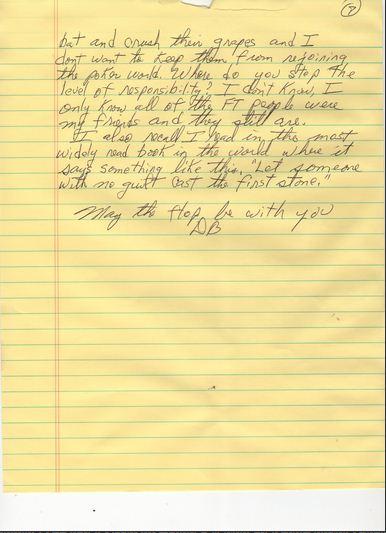 7
bat and crush their grapes and I
dont want to keep them from rejoining
the poker world. Where do you stop the
level of responsibility? I don't know, I
only know all of the FT people were
my friends and they still are.
I also recall I read in the most
widely read book in the world where it
says something like this, "Let someone
with no guilt cast the first stone."
May the flop be with you
DB